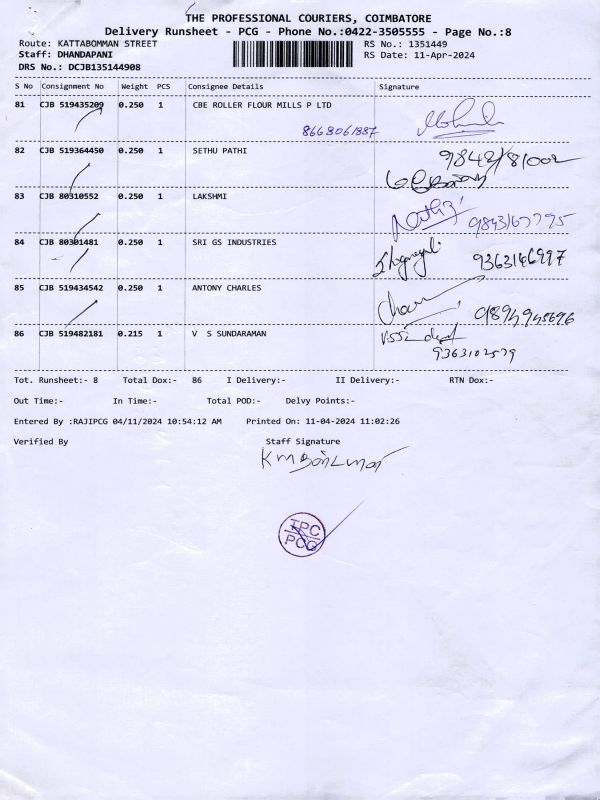 THE PROFESSIONAL COURIERS, COIMBATORE
Delivery Runsheet - PCG - Phone No.:0422-3505555 - Page No.:8
Route: KATTABOMMAN STREET RS No.: 1351449
Staff: DHANDAPANI RS Date: 11-Apr-2024
DRS No.: DCJB135144908
S No Consignment No Weight PCS Consignee Details Signature
81 CJB 519435209 0.250 1 CBE ROLLER FLOUR MILLS P LTD
82 CJB 519364450 0.250 1 SETHU PATHI
83 CJB 80310552 0.250 1 LAKSHMI
84 CJB 80301481 0.250 1 SRI GS INDUSTRIES
9363146997
85 CJB 519434542 0.250 1 ANTONY CHARLES
86 CJB 519482181 0.215 1 V S SUNDARAMAN
9363102579
Tot. Runsheet:- 8 Total Dox:- 86 I Delivery:- II Delivery:- RTN Dox:-
Out Time:- In Time:- Total POD:- Delvy Points:-
Entered By :RAJIPCG 04/11/2024 10:54:12 AM Printed On: 11-04-2024 11:02:26
Verified By Staff Signature
TPC
PCG